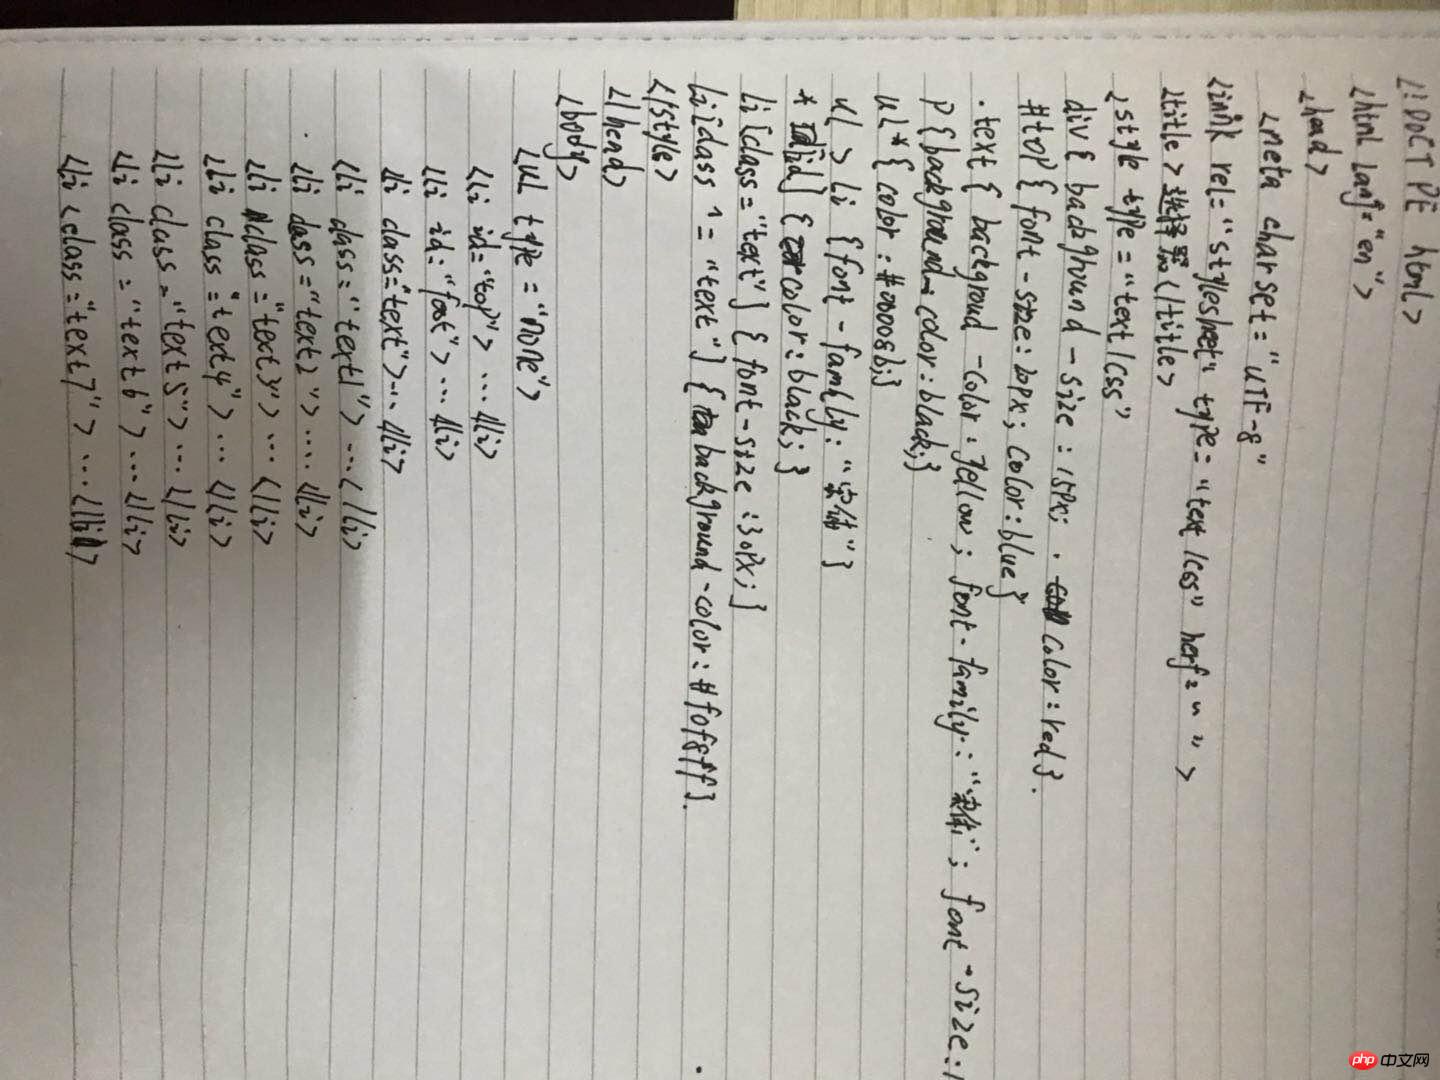 <!DOCTPE html>
<html lang="en">
<head>
<meta charset="UTF-8"
<link rel="stylesheet" type="text/css" herf="">
<title>选择器</title>
<style type="text/css"
div{background-size:15px; color:red}.
#top{font-size:20px; color:blue}
.text{backgroud-color:yellow; font-family:"宋体"; font-size:1
p{background-color:black;}
ul*{color:#00008b;}
ul>li{font-family:"宋体"}
*[id]{color:black;}
li[class="text"]{font-size:30px;}
li[class^="text"]{background-color:#f0f8ff}.
</style>
</head>
<body>
<ul type="none">
<li id="top">...</li>
<li id="foot">...</li>
<li class="text">...</li>
<li class="text1">...</li>
<li class="text2">....</li>
<li class="text3">...</li>
<li class="text4">...</li>
<li class="text5">...</li>
<li class="text6">...</li>
<li <class="text7">...</li>
php 中文网